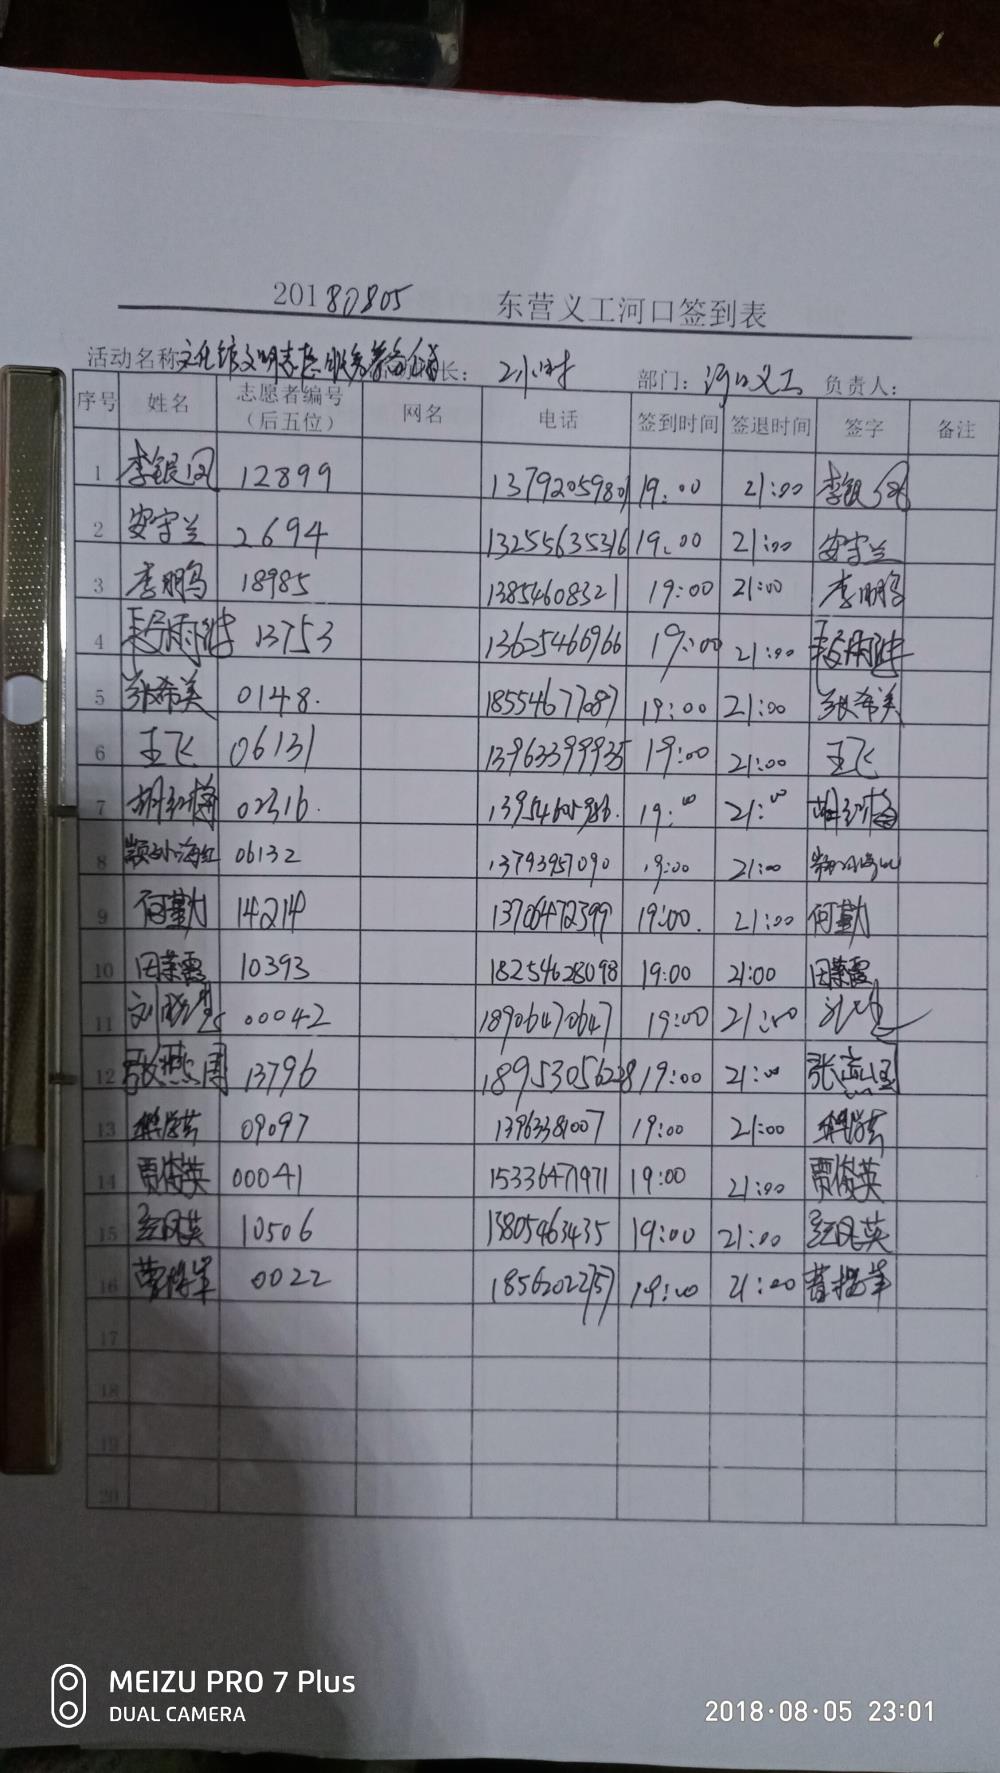 20180805 东营义工河口签到表
活动名称 文化馆文明志愿服务 长： 2小时 部门：河口义工 负责人：
序号 姓名 志愿者编号（后五位） 网名 电话 签到时间 签退时间 签字 备注
1 李银凤 12899 13792059801 19:00 21:00 李银凤
2 安守兰 2694 13255635316 19:00 21:00 安守兰
3 李鹏鸟 18985 13854608321 19:00 21:00 李鹏鸟
4 13753 13625466966 19:00 21:00
5 张希美 0148. 18554677087 19:00 21:00 张希美
6 王飞 06131 13963399935 19:00 21:00 王飞
7 胡红梅 02316. 19:00 21:00 胡红梅
8 海红 06132 13793957090 19:00 21:00
9 何勤 14214 13706472399 19:00. 21:00 何勤
10 田荣霞 10393 18254628098 19:00 21:00 田荣霞
11 刘 00042 18906470647 19:00 21:00
12 张燕周 13796 18953056228 19:00 21:00 张
13 09097 13963381007 19:00 21:00
14 贾俊英 00041 15336471971 19:00 21:00 贾俊英
15 凤英 10506 13805463435 19:00 21:00 凤英
16 曹 0022 19:00 21:00 曹
17
18
19
20
MEIZU PRO 7 Plus
DUAL CAMERA
2018·08·05 23:01